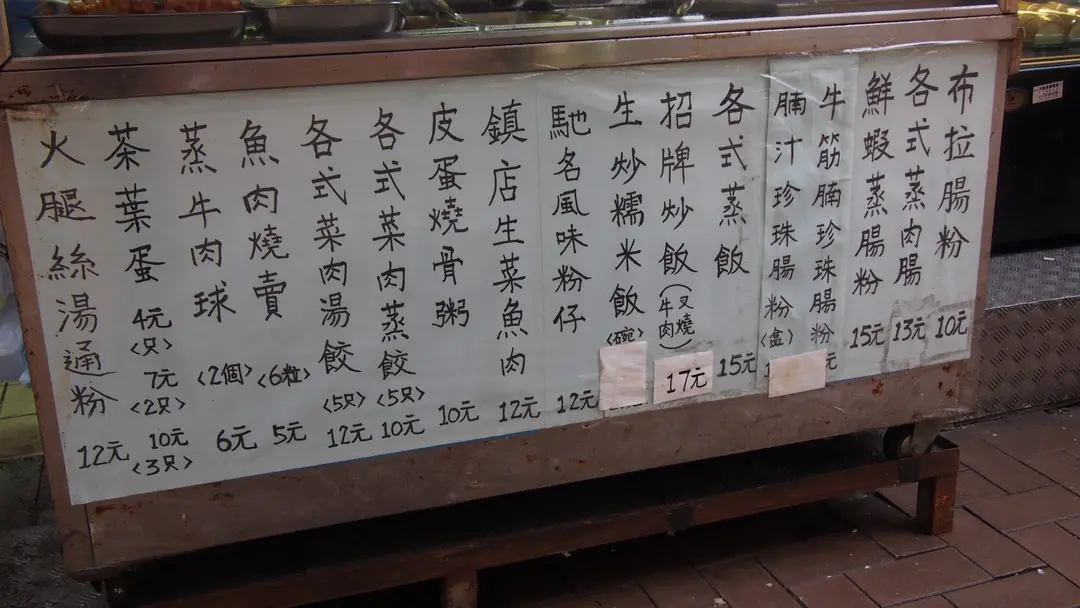 布拉腸粉 10元
各式蒸肉腸 13元
鮮蝦蒸腸粉 15元
牛筋腩珍珠腸粉
腩汁珍珠腸粉(盒)
元
各式蒸飯 15元
招牌炒飯(叉燒牛肉) 17元
生炒糯米飯(碗)
馳名風味粉仔 12元
鎮店生菜魚肉 12元
皮蛋燒骨粥 10元
各式菜肉蒸餃<5只> 10元
各式菜肉湯餃<5只> 12元
魚肉燒賣<6粒> 5元
蒸牛肉球<2個> 6元
茶葉蛋 4元<只> 7元<2只> 10元<3只>
火腿絲湯通粉 12元